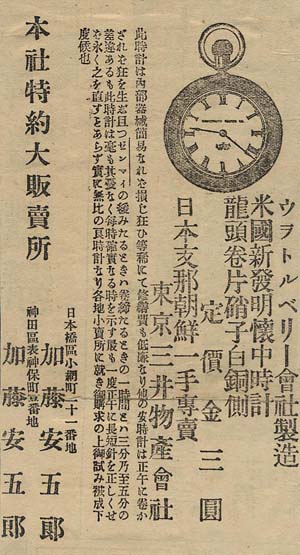 ウヲトルベリー會社製造
米國新發明懷中時計
龍頭卷片硝子白銅側
定價金三圓
日本支那朝鮮一手專賣
東京三井物產會社
此時計は內部器械簡易なれを損じ狂ひ等稀にて修繕費も低廉なり他の安時計は正午に卷か
ざれを狂を生ぢ且つゼンマイの緩みたるときハ卷締たるときの一時間と八三分乃至五分の
差違あるも此時計は毫も其憂なく每時確實なる時を示す最も一度正午に長短針を正しくせ
を永く之を直すとあらず實に無比の良時計なり各地小賣所に就き御購求の上御試み被成下
度候也
本社特約大販賣所
日本橋區小網町二十一番地
加藤安五郎
神田區表神保町壹番地
加藤安五郎